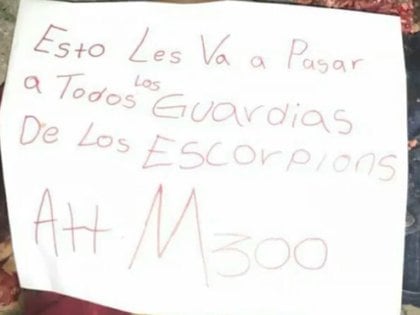 Esto Les Va a Pasar
a Todos los Guardias
De Los Escorpions
Att M300